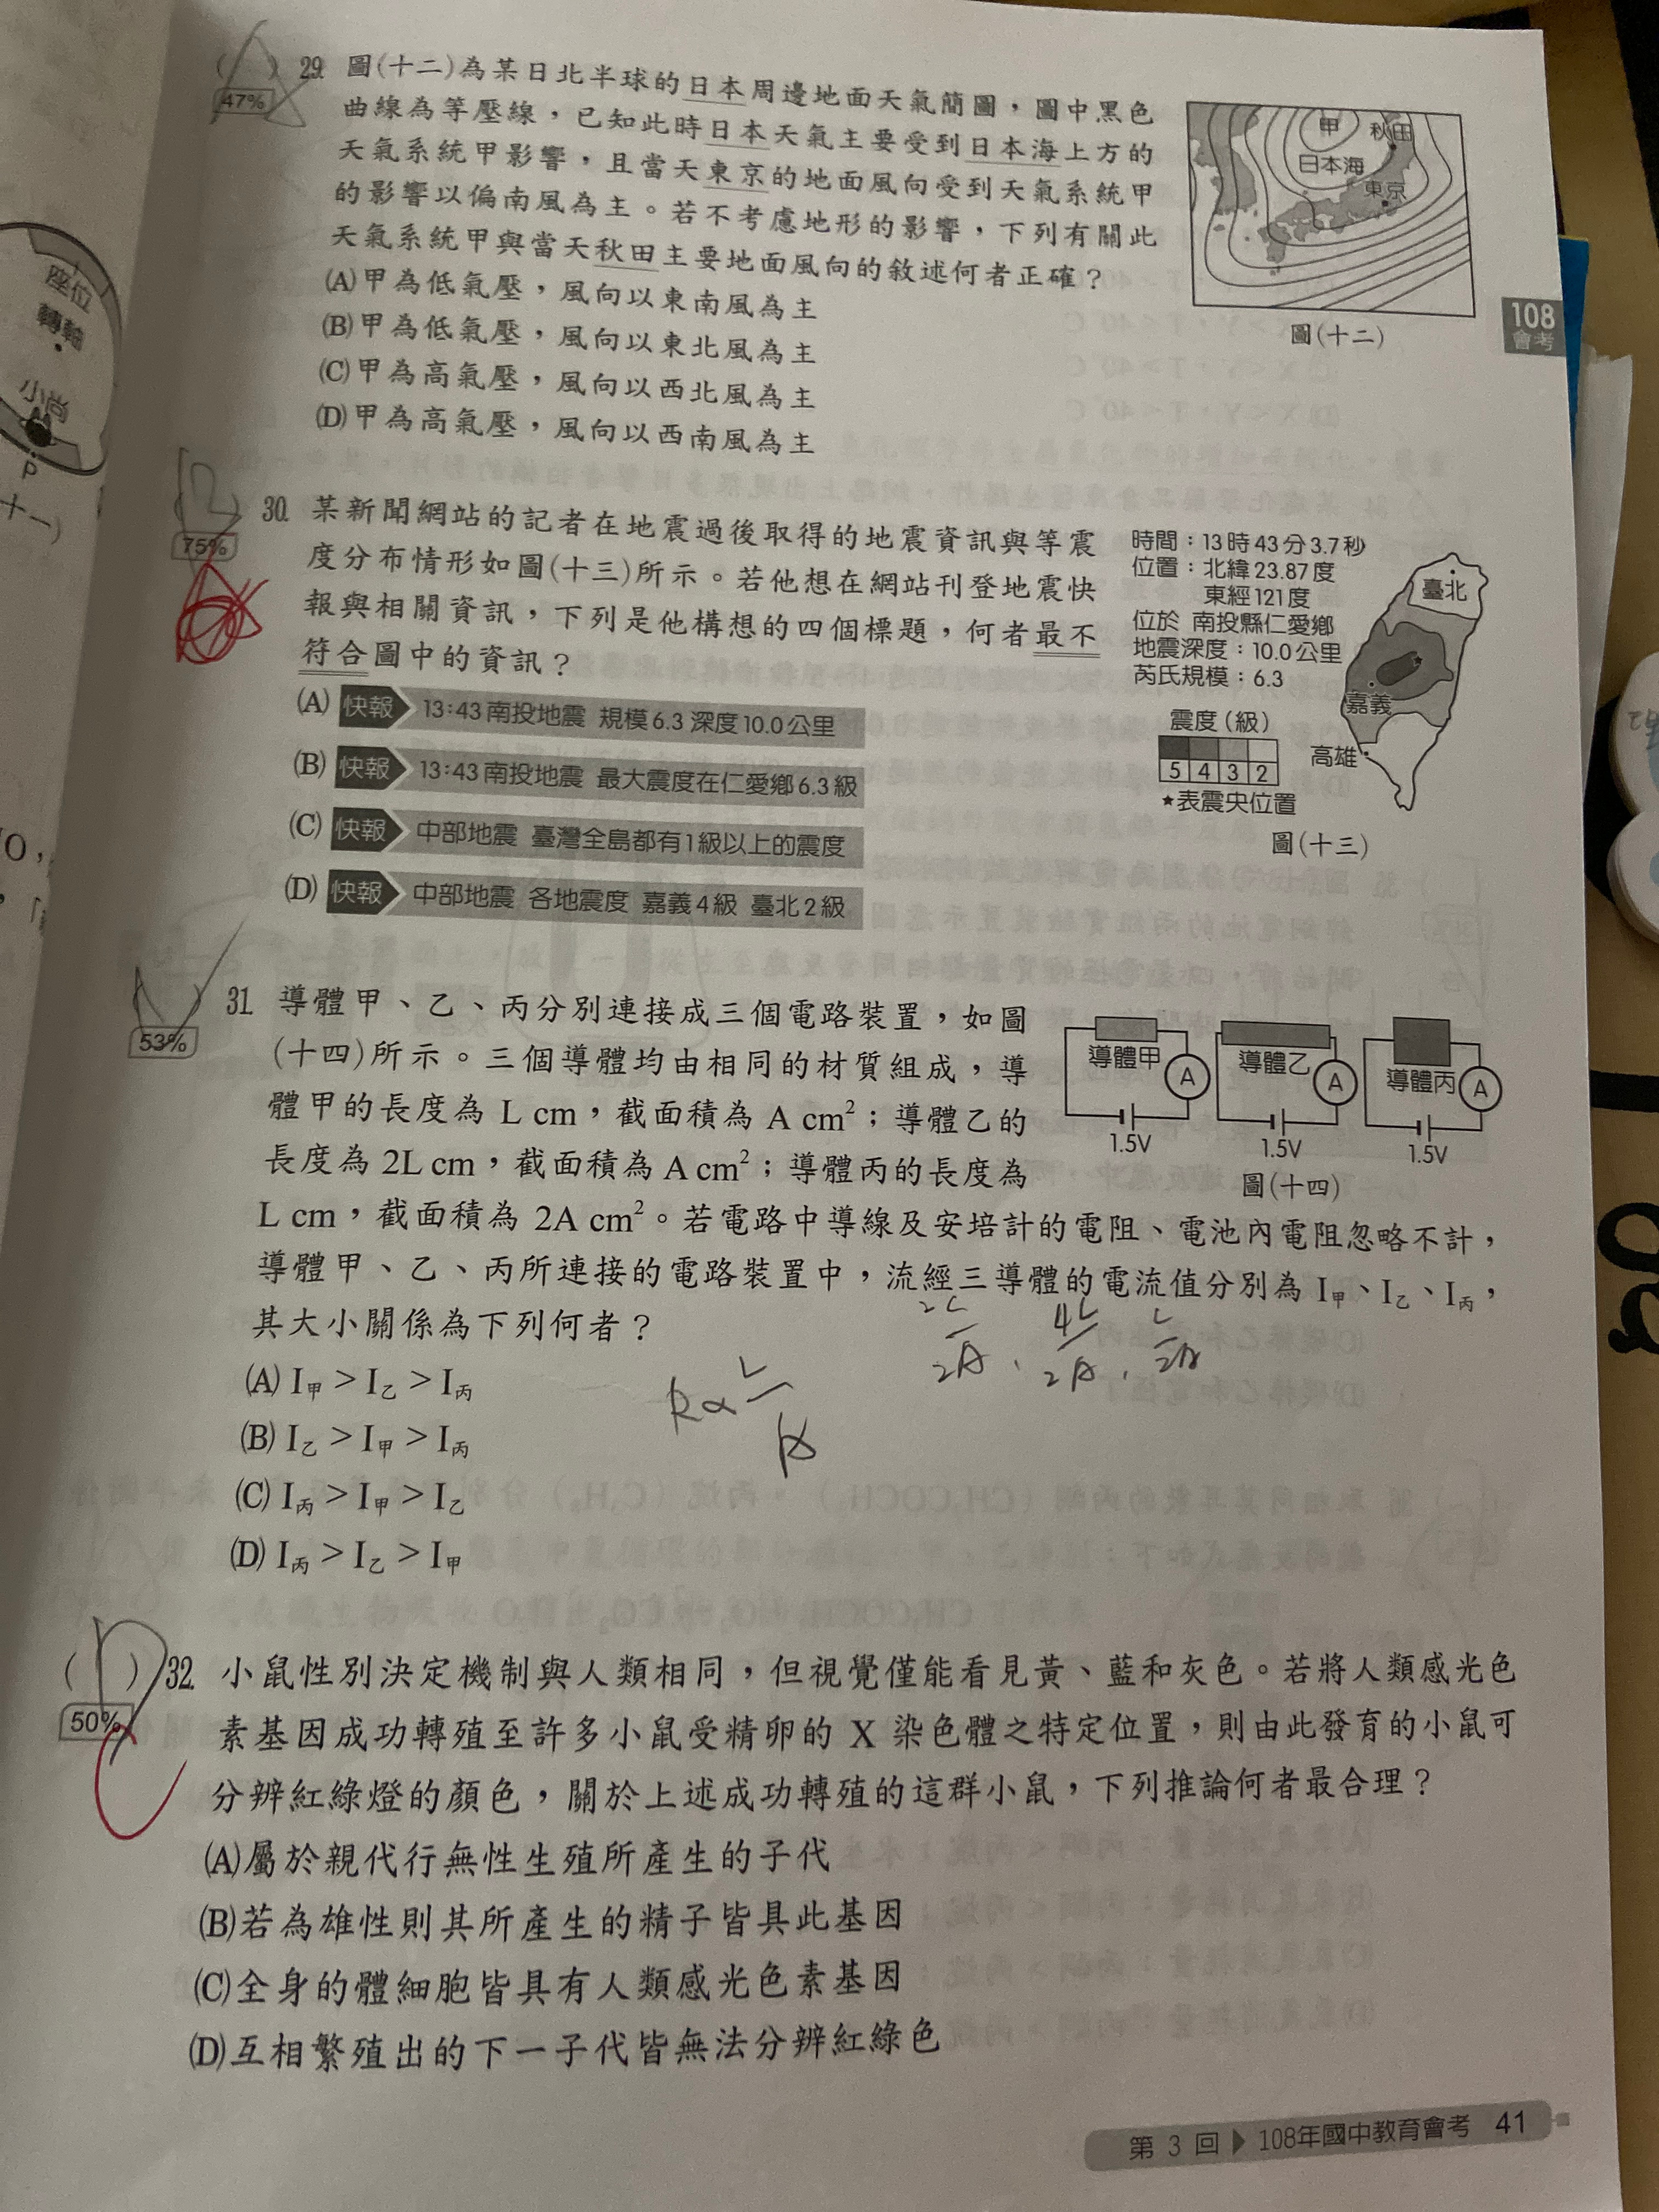 29. 圖(十二)為某日北半球的日本周邊地面天氣簡圖，圖中黑色
曲線為等壓線，已知此時日本天氣主要受到日本海上方的
天氣系統甲影響，且當天東京的地面風向受到天氣系統甲
的影響以偏南風為主。若不考慮地形的影響，下列有關此
天氣系統甲與當天秋田主要地面風向的敘述何者正確？
(A)甲為低氣壓，風向以東南風為主
(B)甲為低氣壓，風向以東北風為主
(C)甲為高氣壓，風向以西北風為主
(D)甲為高氣壓，風向以西南風為主
47%
甲
秋田
日本海
東京
圖(十二)
108
會考
座位
轉軸
小尚
P
十一)
30. 某新聞網站的記者在地震過後取得的地震資訊與等震
度分布情形如圖(十三)所示。若他想在網站刊登地震快
報與相關資訊，下列是他構想的四個標題，何者最不
符合圖中的資訊？
75%
(A) 快報 13:43南投地震 規模6.3 深度10.0公里
(B) 快報 13:43南投地震 最大震度在仁愛鄉6.3級
(C) 快報 中部地震 臺灣全島都有1級以上的震度
(D) 快報 中部地震 各地震度 嘉義4級 臺北2級
時間：13時43分3.7秒
位置：北緯23.87度
東經121度
位於 南投縣仁愛鄉
地震深度：10.0公里
芮氏規模：6.3
震度(級)
5 4 3 2
★表震央位置
臺北
嘉義
高雄
圖(十三)
31. 導體甲、乙、丙分別連接成三個電路裝置，如圖
(十四)所示。三個導體均由相同的材質組成，導
體甲的長度為 L cm，截面積為 A cm²；導體乙的
長度為 2L cm，截面積為 A cm²；導體丙的長度為
L cm，截面積為 2A cm²。若電路中導線及安培計的電阻、電池內電阻忽略不計，
導體甲、乙、丙所連接的電路裝置中，流經三導體的電流值分別為 I甲、I乙、I丙，
其大小關係為下列何者？
53%
(A) I甲 > I乙 > I丙
(B) I乙 > I甲 > I丙
(C) I丙 > I甲 > I乙
(D) I丙 > I乙 > I甲
導體甲 A 1.5V
導體乙 A 1.5V
導體丙 A 1.5V
圖(十四)
R∝L/A
2L/2A、4L/2A、L/2A
32. 小鼠性別決定機制與人類相同，但視覺僅能看見黃、藍和灰色。若將人類感光色
素基因成功轉殖至許多小鼠受精卵的 X 染色體之特定位置，則由此發育的小鼠可
分辨紅綠燈的顏色，關於上述成功轉殖的這群小鼠，下列推論何者最合理？
50%
(A)屬於親代行無性生殖所產生的子代
(B)若為雄性則其所產生的精子皆具此基因
(C)全身的體細胞皆具有人類感光色素基因
(D)互相繁殖出的下一子代皆無法分辨紅綠色
第 3 回 ▶ 108年國中教育會考 41